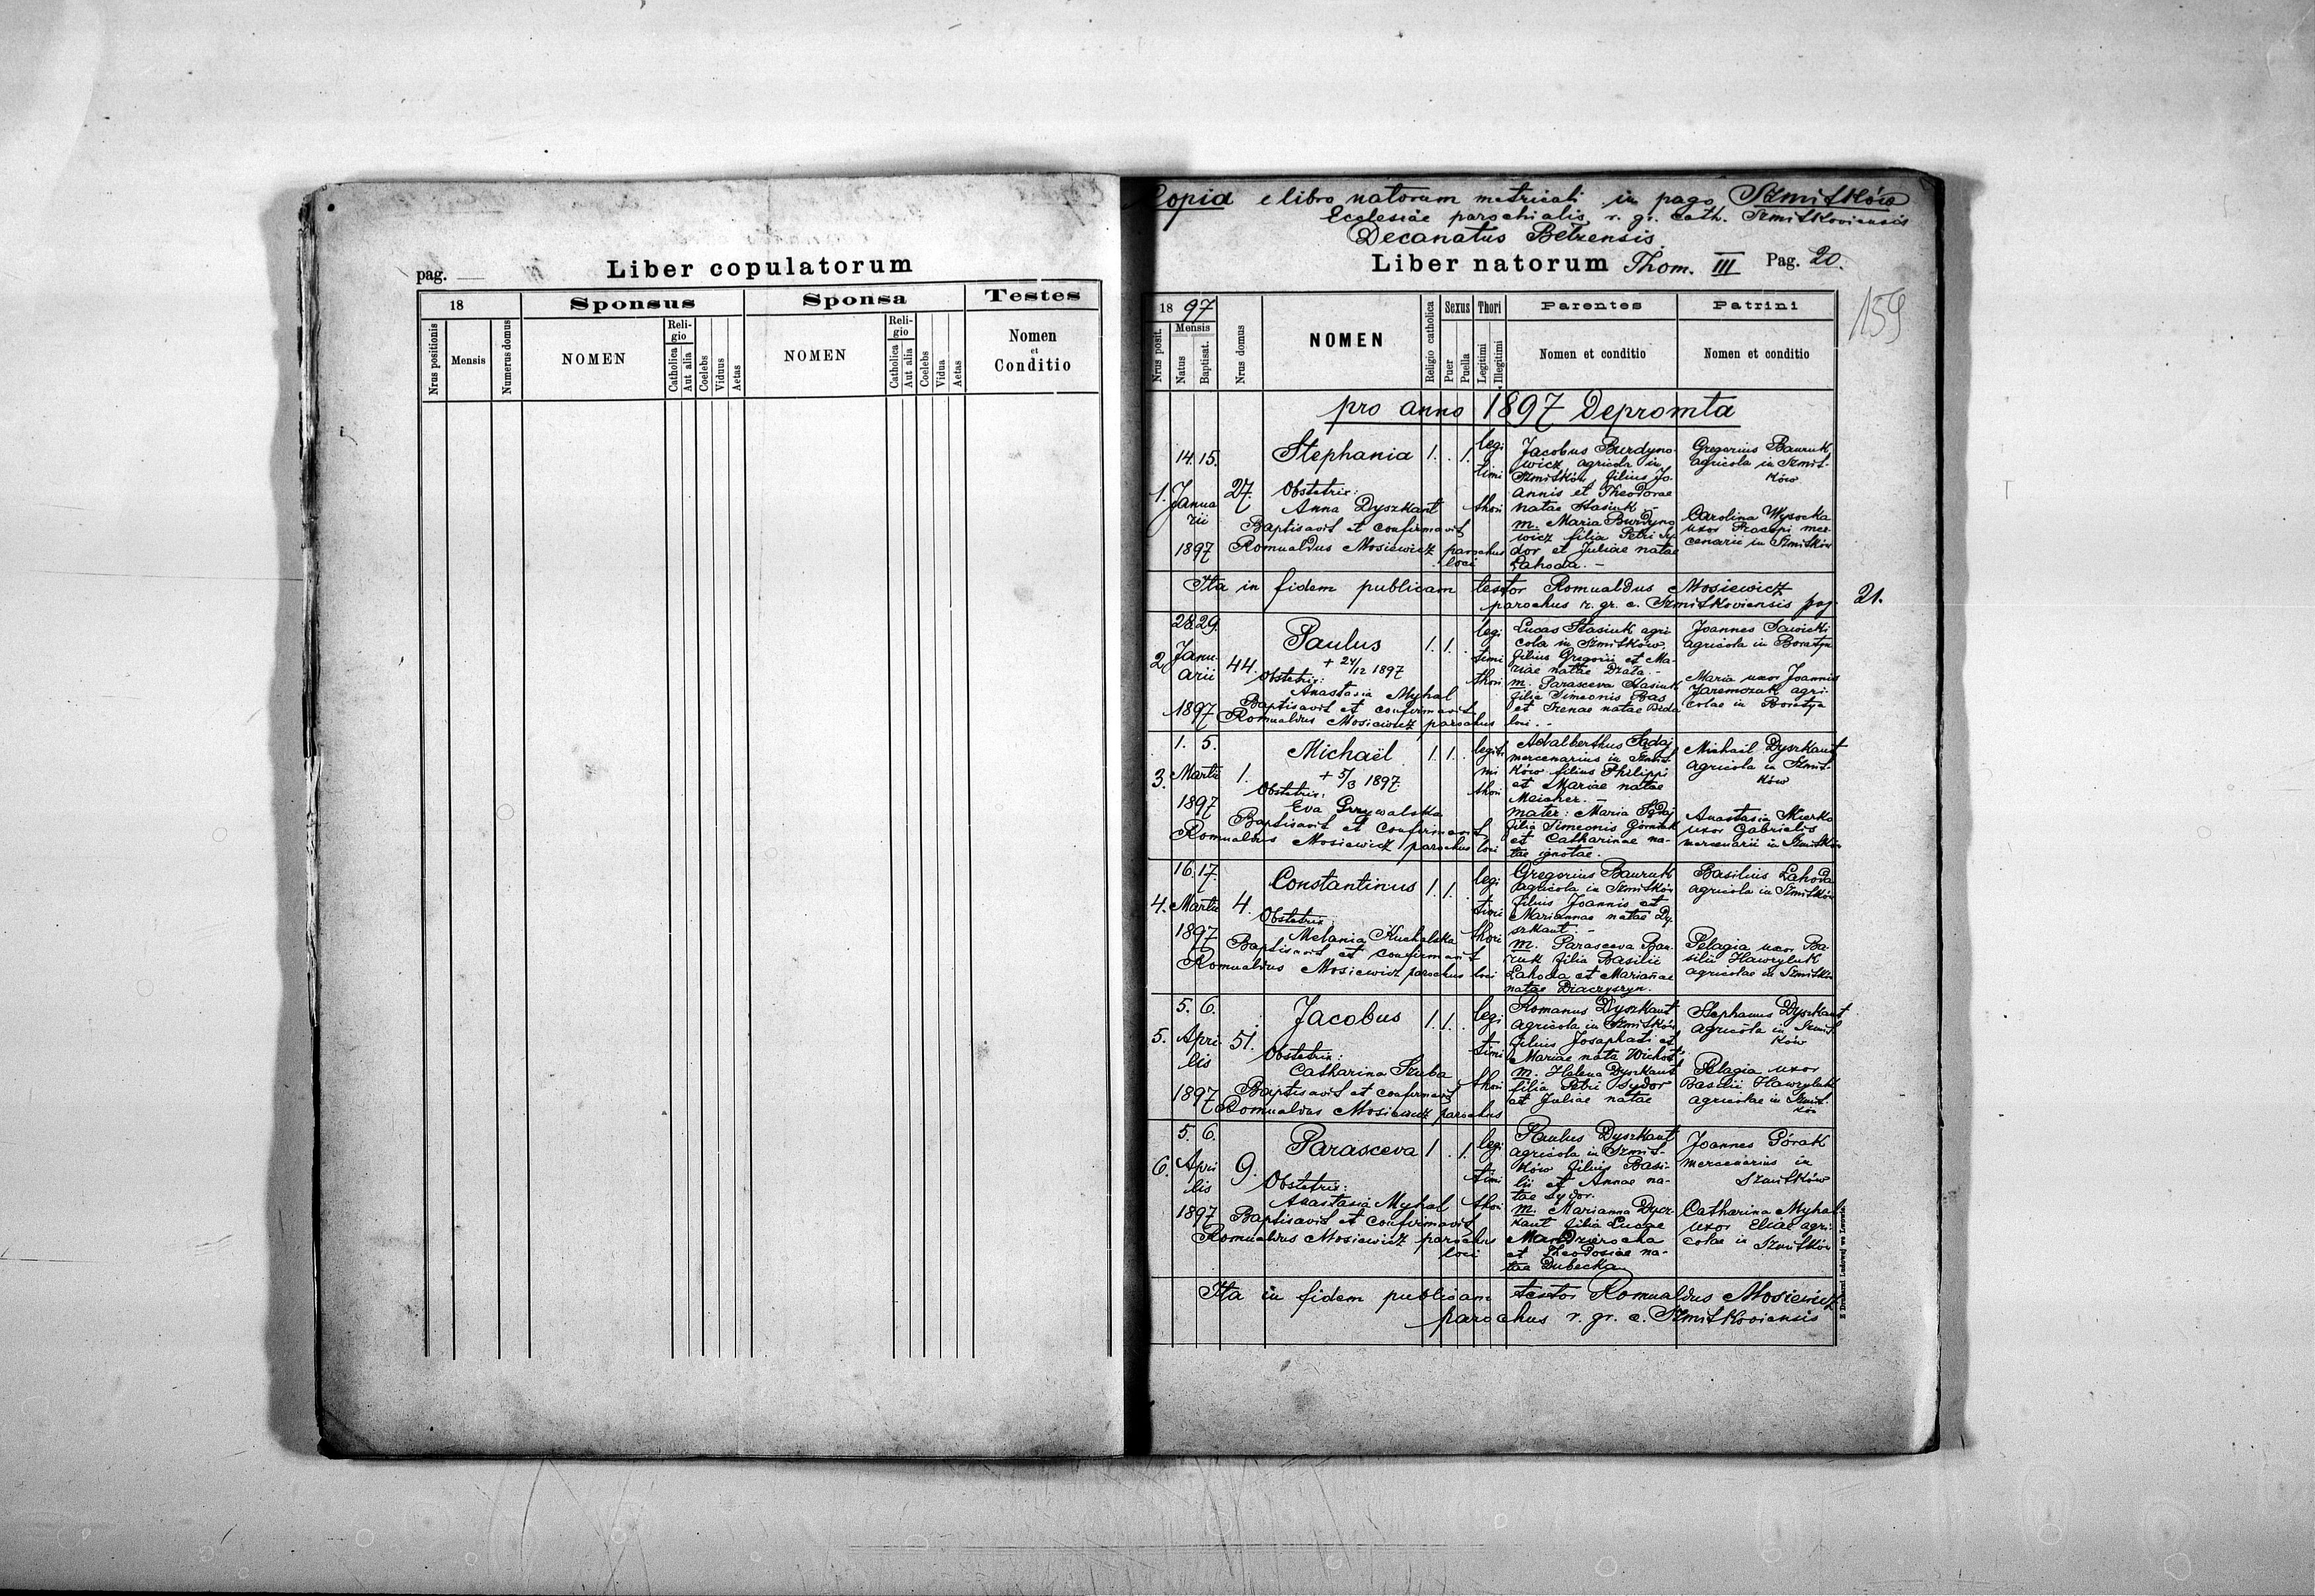 pag.
Liber copulatorum
18
Sponsus
Sponsa
Testes
Nrus positionis
Mensis
Numerus domus
NOMEN
Religio
Catholica
Aut alia
Coelebs
Viduus
Aetas
NOMEN
Religio
Catholica
Aut alia
Coelebs
Vidua
Aetas
Nomen
et
Conditio
Copia e libro natorum metricali in pago Szmitków
Ecclesiae parochialis r. gr. cath. Szmitkoviensis
Decanatus Belzensis.
Liber natorum Thom. III Pag. 20.
159
18 97
Mensis
Nrus posit.
Natus
Baptisat.
Nrus domus
NOMEN
Religio catholica
Sexus
Puer
Puella
Thori
Legitimi
Illegitimi
Parentes
Nomen et conditio
Patrini
Nomen et conditio
pro anno 1897 Depromta
1.
14. 15.
Janua
rii
1897
27.
Stephania
Obstetrix:
Anna Dyszkant
Baptisavit et confirmavit
Romualdus Mosiewicz parochus
loci
1. . 1.
legi
timi
thori
Jacobus Burdyno
wicz agricola in
Szmitków, filius Jo-
annis et Theodorae
natae Stasiuk -
m. Maria Burdyno
wicz filia Petri Sy
dor et Juliae natae
Lahoda. -
Gregorius Bauruk
agricola in Szmit-
ków
Carolina Wysocka
uxor Procopi mer-
cenarii in Szmitków
Ita in fidem publicam testor Romualdus Mosiewicz
parochus r. gr. c. Szmitkoviensis pag. 21.
2.
28. 29.
Janu
arii
1897
44.
Paulus
+ 24/12 1897
Obstetrix:
Anastasia Myhal
Baptisavit et confirmavit
Romualdus Mosiewicz parochus loci. -
1. 1.
legi
timi
thori
Lucas Stasiuk agri
cola in Szmitków,
filius Gregorii et Ma-
riae natae Dzata. -
m. Parasceva Stasiuk
filia Simeonis Bas
et Irenae natae
Joannes Sawicki
agricola in Boratyn
Maria uxor Joannis
Jaremczuk agri-
colae in Boratyn
3.
1. 5.
Martii
1897
1.
Michaël
+ 5/3 1897.
Obstetrix:
Eva Grzywalska
Baptisavit et confirmavit
Romualdus Mosiewicz parochus loci
1. 1.
legiti
mi
thori
Adalberthus Sądaj
mercenarius in Szmit
ków filius Philippi
et Mariae natae
Meicher. -
mater: Maria Sądaj
filia Simeonis Górniak
et Catharinae na-
tae ignotae.
Michaël Dyszkant
agricola in Szmit-
ków
Anastasia Mierko
uxor Gabrielis
mercenarii in Szmitków
4.
16. 17.
Martii
1897
4.
Constantinus
Obstetrix:
Melania Kuchalska
Baptisavit et confirmavit
Romualdus Mosiewicz parochus loci
1. 1.
legi
timi
thori
Gregorius Bauruk
agricola in Szmitków
filius Joannis et
Mariannae natae Dy-
szkant. -
m. Parasceva Bau-
ruk filia Basilii
Lahoda et Mariañae
natae Diaczyszyn.
Basilius Lahoda
agricola in Szmitków
Pelagia uxor Ba-
silii Hawryluk
agricolae in Szmitków
5.
5. 6.
Apri-
lis
1897
51.
Jacobus
Obstetrix:
Catharina Szuba
Baptisavit et confirmavit
Romualdus Mosiewicz parochus
1. 1.
legi
timi
thori
Romanus Dyszkant
agricola in Szmitków,
filius Josaphati et
Mariae nata
m. Helena Dyszkant
filia Petri Sydor
et Juliae natae
Stephanus Dyszkant
agricola in Szmit
ków
Pelagia uxor
Basilii Hawryluk
agricolae in Szmit.
ków
6.
5. 6.
Apri
lis
1897
9.
Parasceva
Obstetrix:
Anastasia Myhal
Baptisavit et confirmavit
Romualdus Mosiewicz parochus
loci
1 . 1.
legi
timi
thori
Paulus Dyszkant
agricola in Szmit-
ków filius Basi-
lii et Annae na-
tae Sydor.
m. Marianna Dysz-
kant filia Lucae
Mandzierocha
et Theodosiae na-
tae Dubecka
Joannes Górak
mercenarius in
Szmitków
Catharina Myhal
uxor Eliae agri-
colae in Szmitków
Ita in fidem publicam testor Romualdus Mosiewicz
parochus r. gr. c. Szmitkoviensis
Z Drukarni Ludowej we Lwowie.